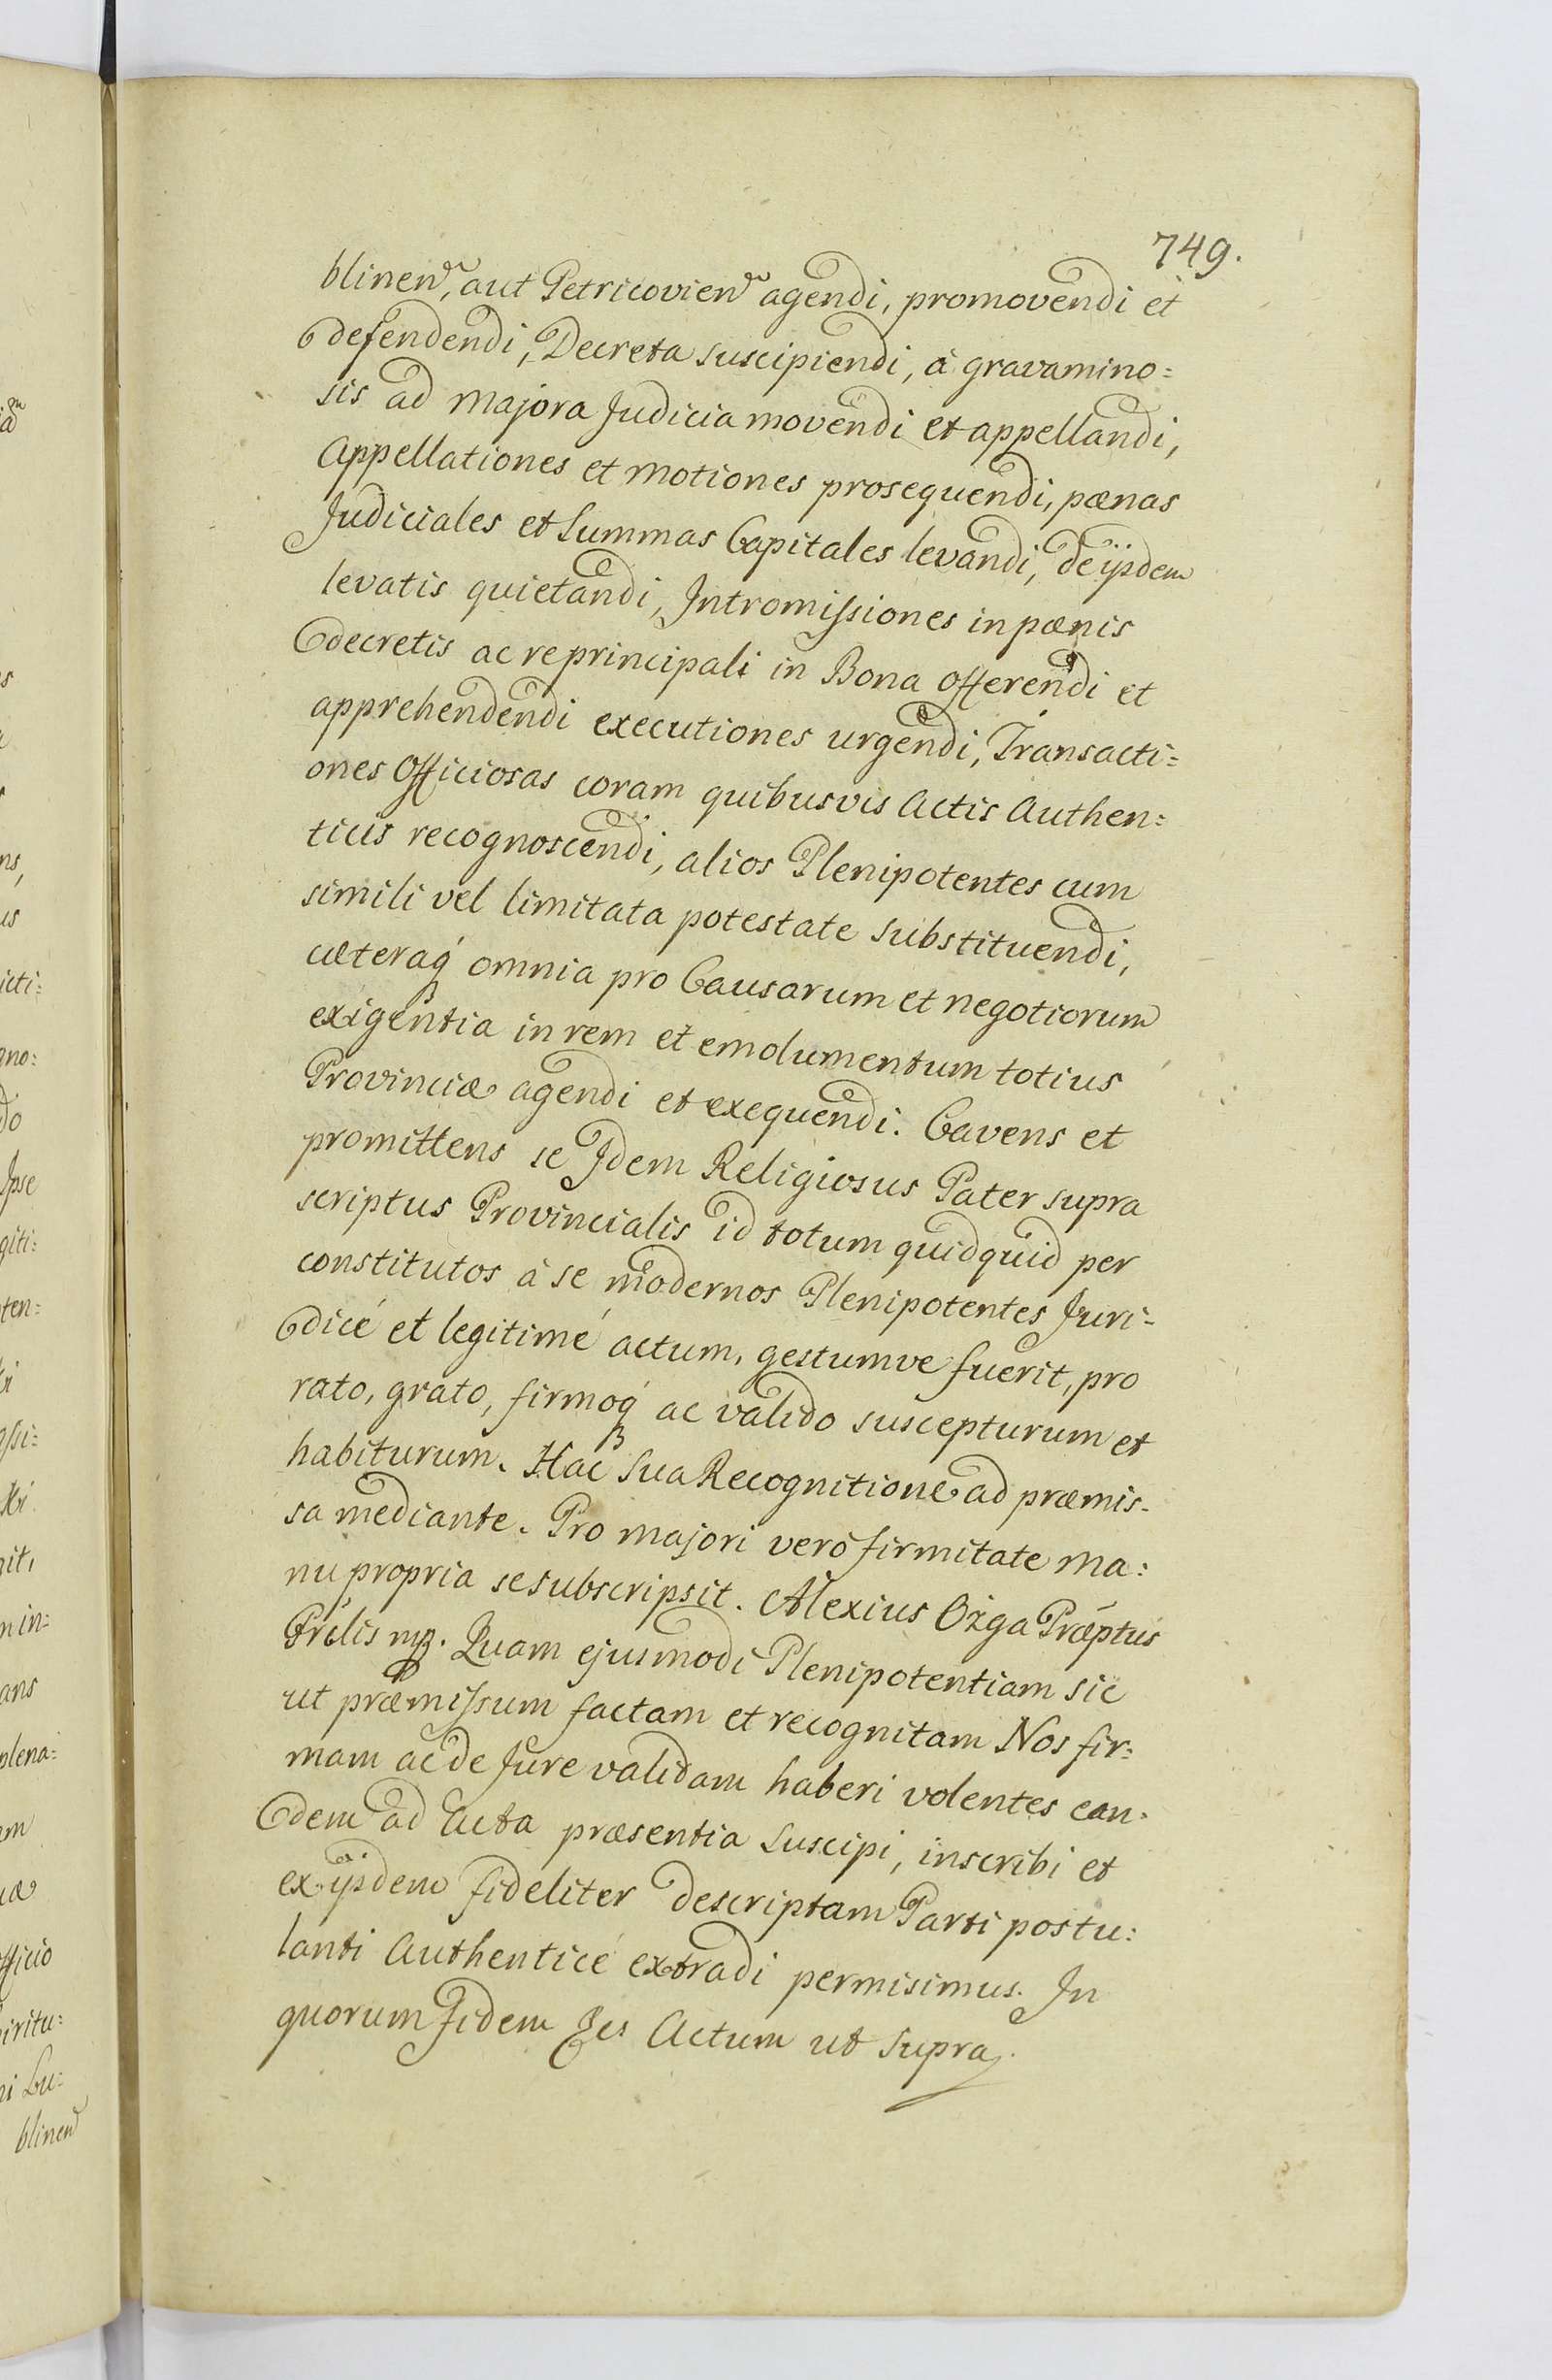 749.
blinen, aut Petricovien agendi, promovendi et
defendendi, Decreta suscipiendi, à gravamino=
sis ad majora Judicia movendi et appellandi,
Appellationes et motiones prosequendi, pœnas
Judiciales et Summas Capitales levandi, de ijsdem
levatis quietandi, Intromissiones in pœnis
decretis ac re principali in Bona offerendi et
apprehendendi executiones urgendi, Transacti=
ones Officiosas coram quibusvis Actis Authen=
ticis recognoscendi, alios Plenipotentes cum
simili vel limitata potestate substituendi,
cæteraq́ omnia pro Causarum et negotiorum
exigentia in rem et emolumentum totius
Provinciæ agendi et exequendi. Cavens et
promittens se Idem Religiosus Pater supra
scriptus Provincialis id totum quidquid per
constitutos à se modernos Plenipotentes Juri=
dicé et legitimé actum, gestumve fuerit, pro
rato, grato, firmoq́ ac valido suscepturum et
habiturum. Hac Sua Recognitione ad præmis=
sa mediante. Pro majori vero firmitate ma=
nu propria se subscripsit. Alexius Ożga Præptus
Prńlis mp. Quam ejusmodi Plenipotentiam sic
ut præmissum factam et recognitam Nos fir=
mam ac de Jure validam haberi volentes ean=
dem ad Acta præsentia suscipi, inscribi et
ex ijsdem fideliter descriptam Parti postu=
lanti Authenticé extradi permisimus. In
quorum Fidem &cs Actum ut supra.
icti:
gno:
do
Ipse
giti:
ten:
min:
ans
plena:
fficio
iritu:
i Lu:
blinen